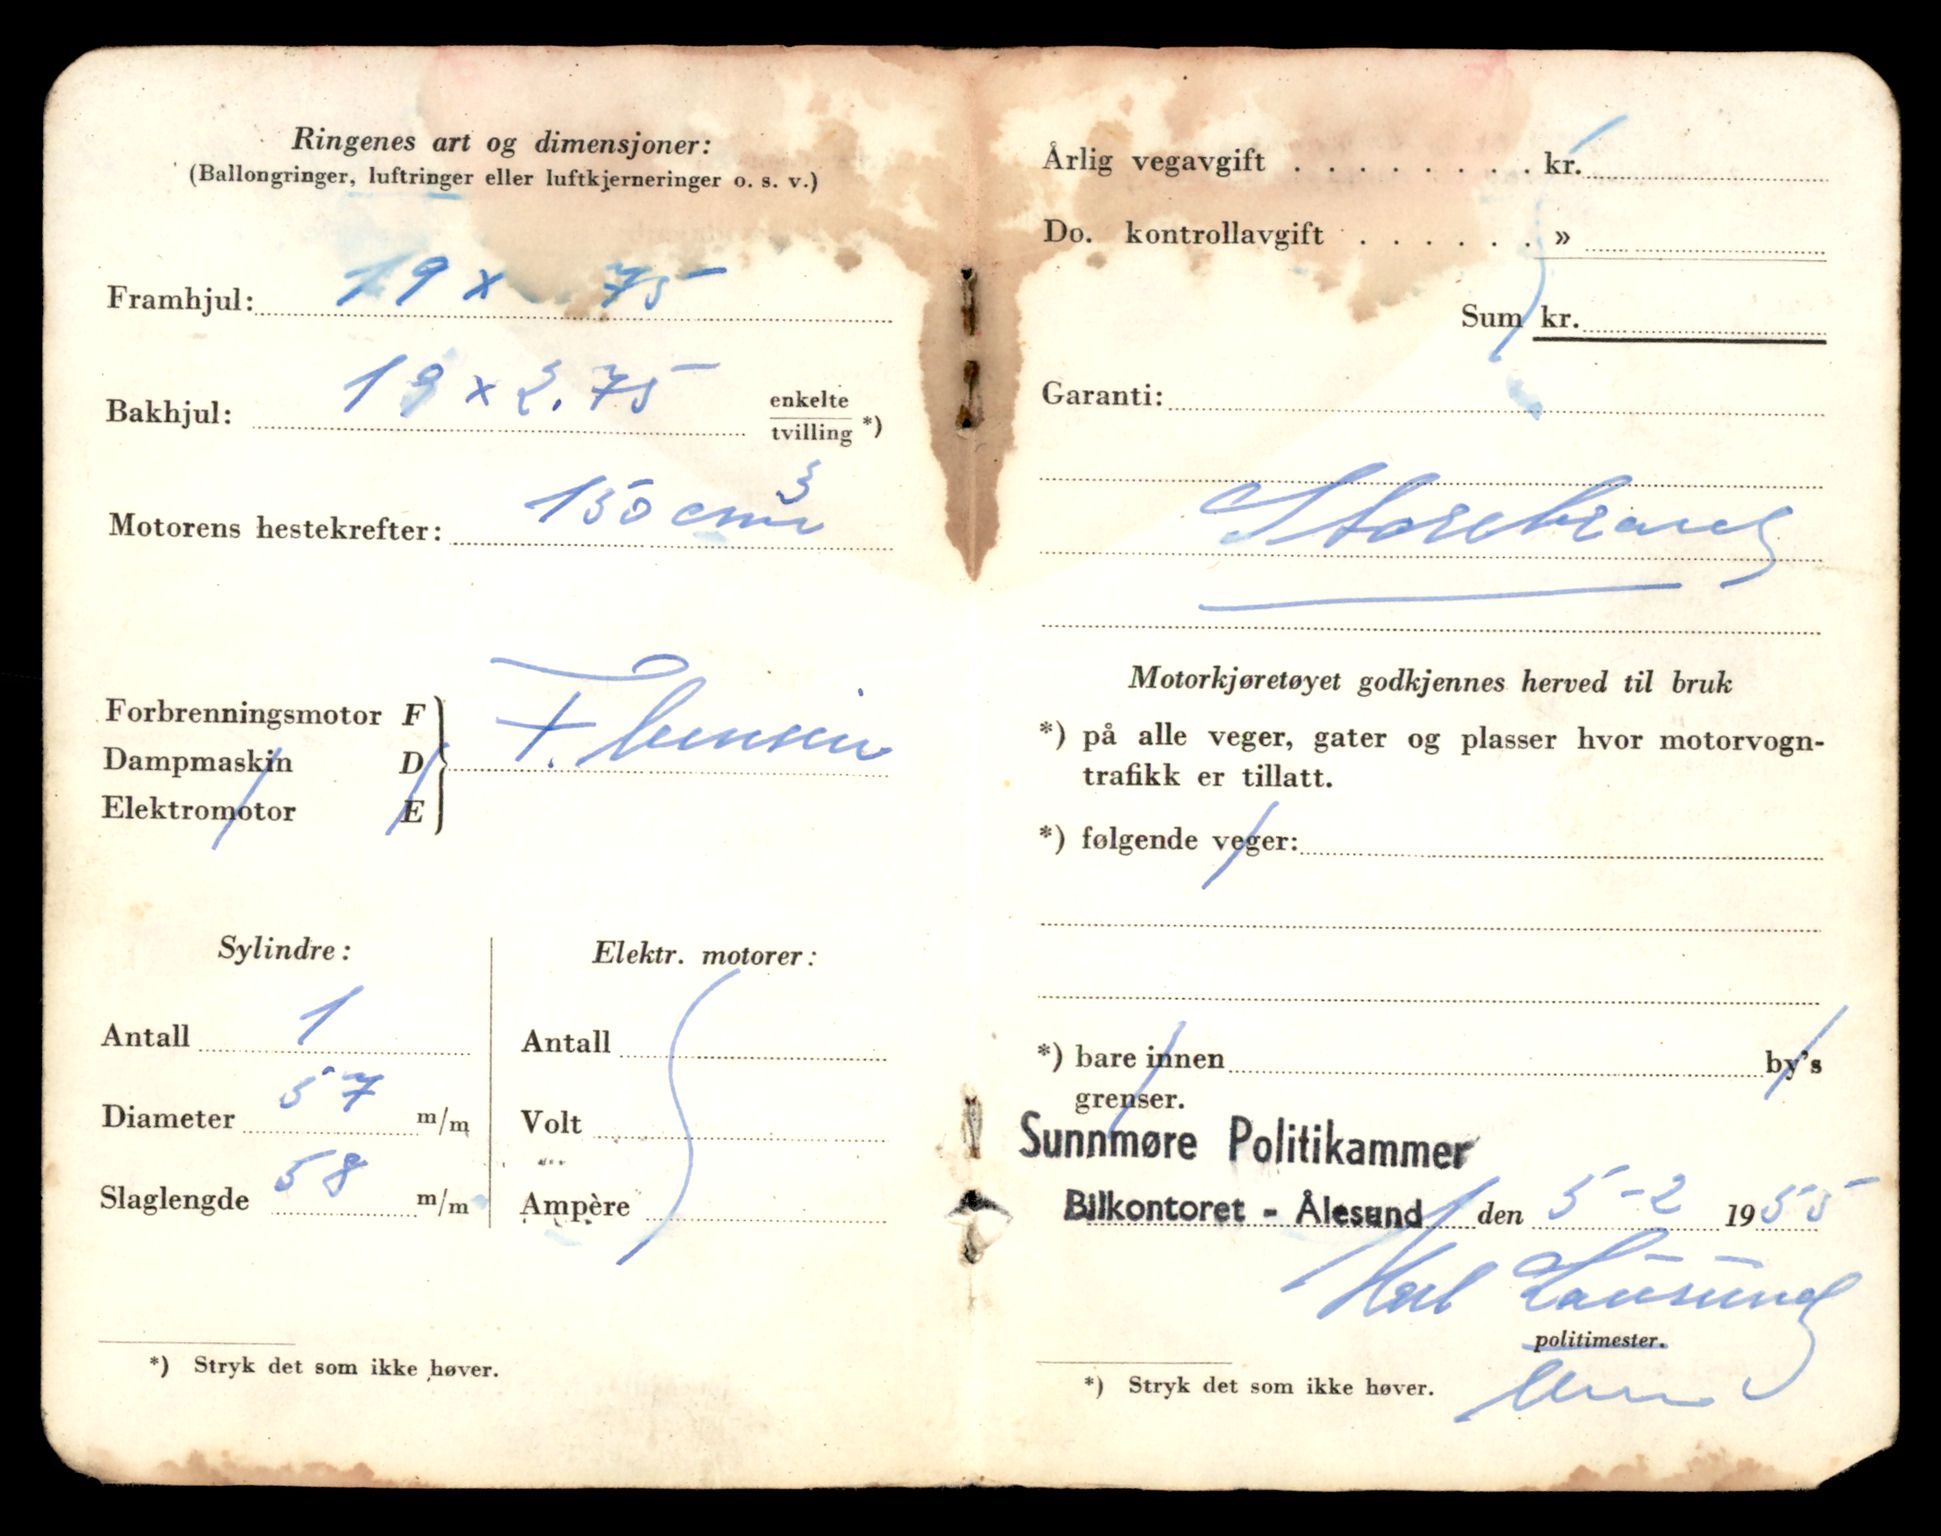 Ringenes art og dimensjoner:
(Ballongringer, luftringer eller luftkjerneringer o. s. v.)
Framhjul: 19 x 75
Bakhjul: 19 x 2.75 enkelte
tvilling *)
Motorens hestekrefter: 150 cm3
Forbrenningsmotor F
Dampmaskin D
Elektromotor E
F. bensin
Sylindre:
Antall 1
Diameter 57 m/m
Slaglengde 58 m/m
Elektr. motorer:
Antall
Volt
Ampère
*) Stryk det som ikke høver.
Årlig vegavgift . . . . . . . . kr.
Do. kontrollavgift . . . . . . »
Sum kr.
Garanti:
Storebrand
Motorkjøretøyet godkjennes herved til bruk
*) på alle veger, gater og plasser hvor motorvogn-
trafikk er tillatt.
*) følgende veger:
*) bare innen by's
grenser.
Sunnmøre Politikammer
Bilkontoret - Ålesund den 5-2 1955
politimester.
*) Stryk det som ikke høver.